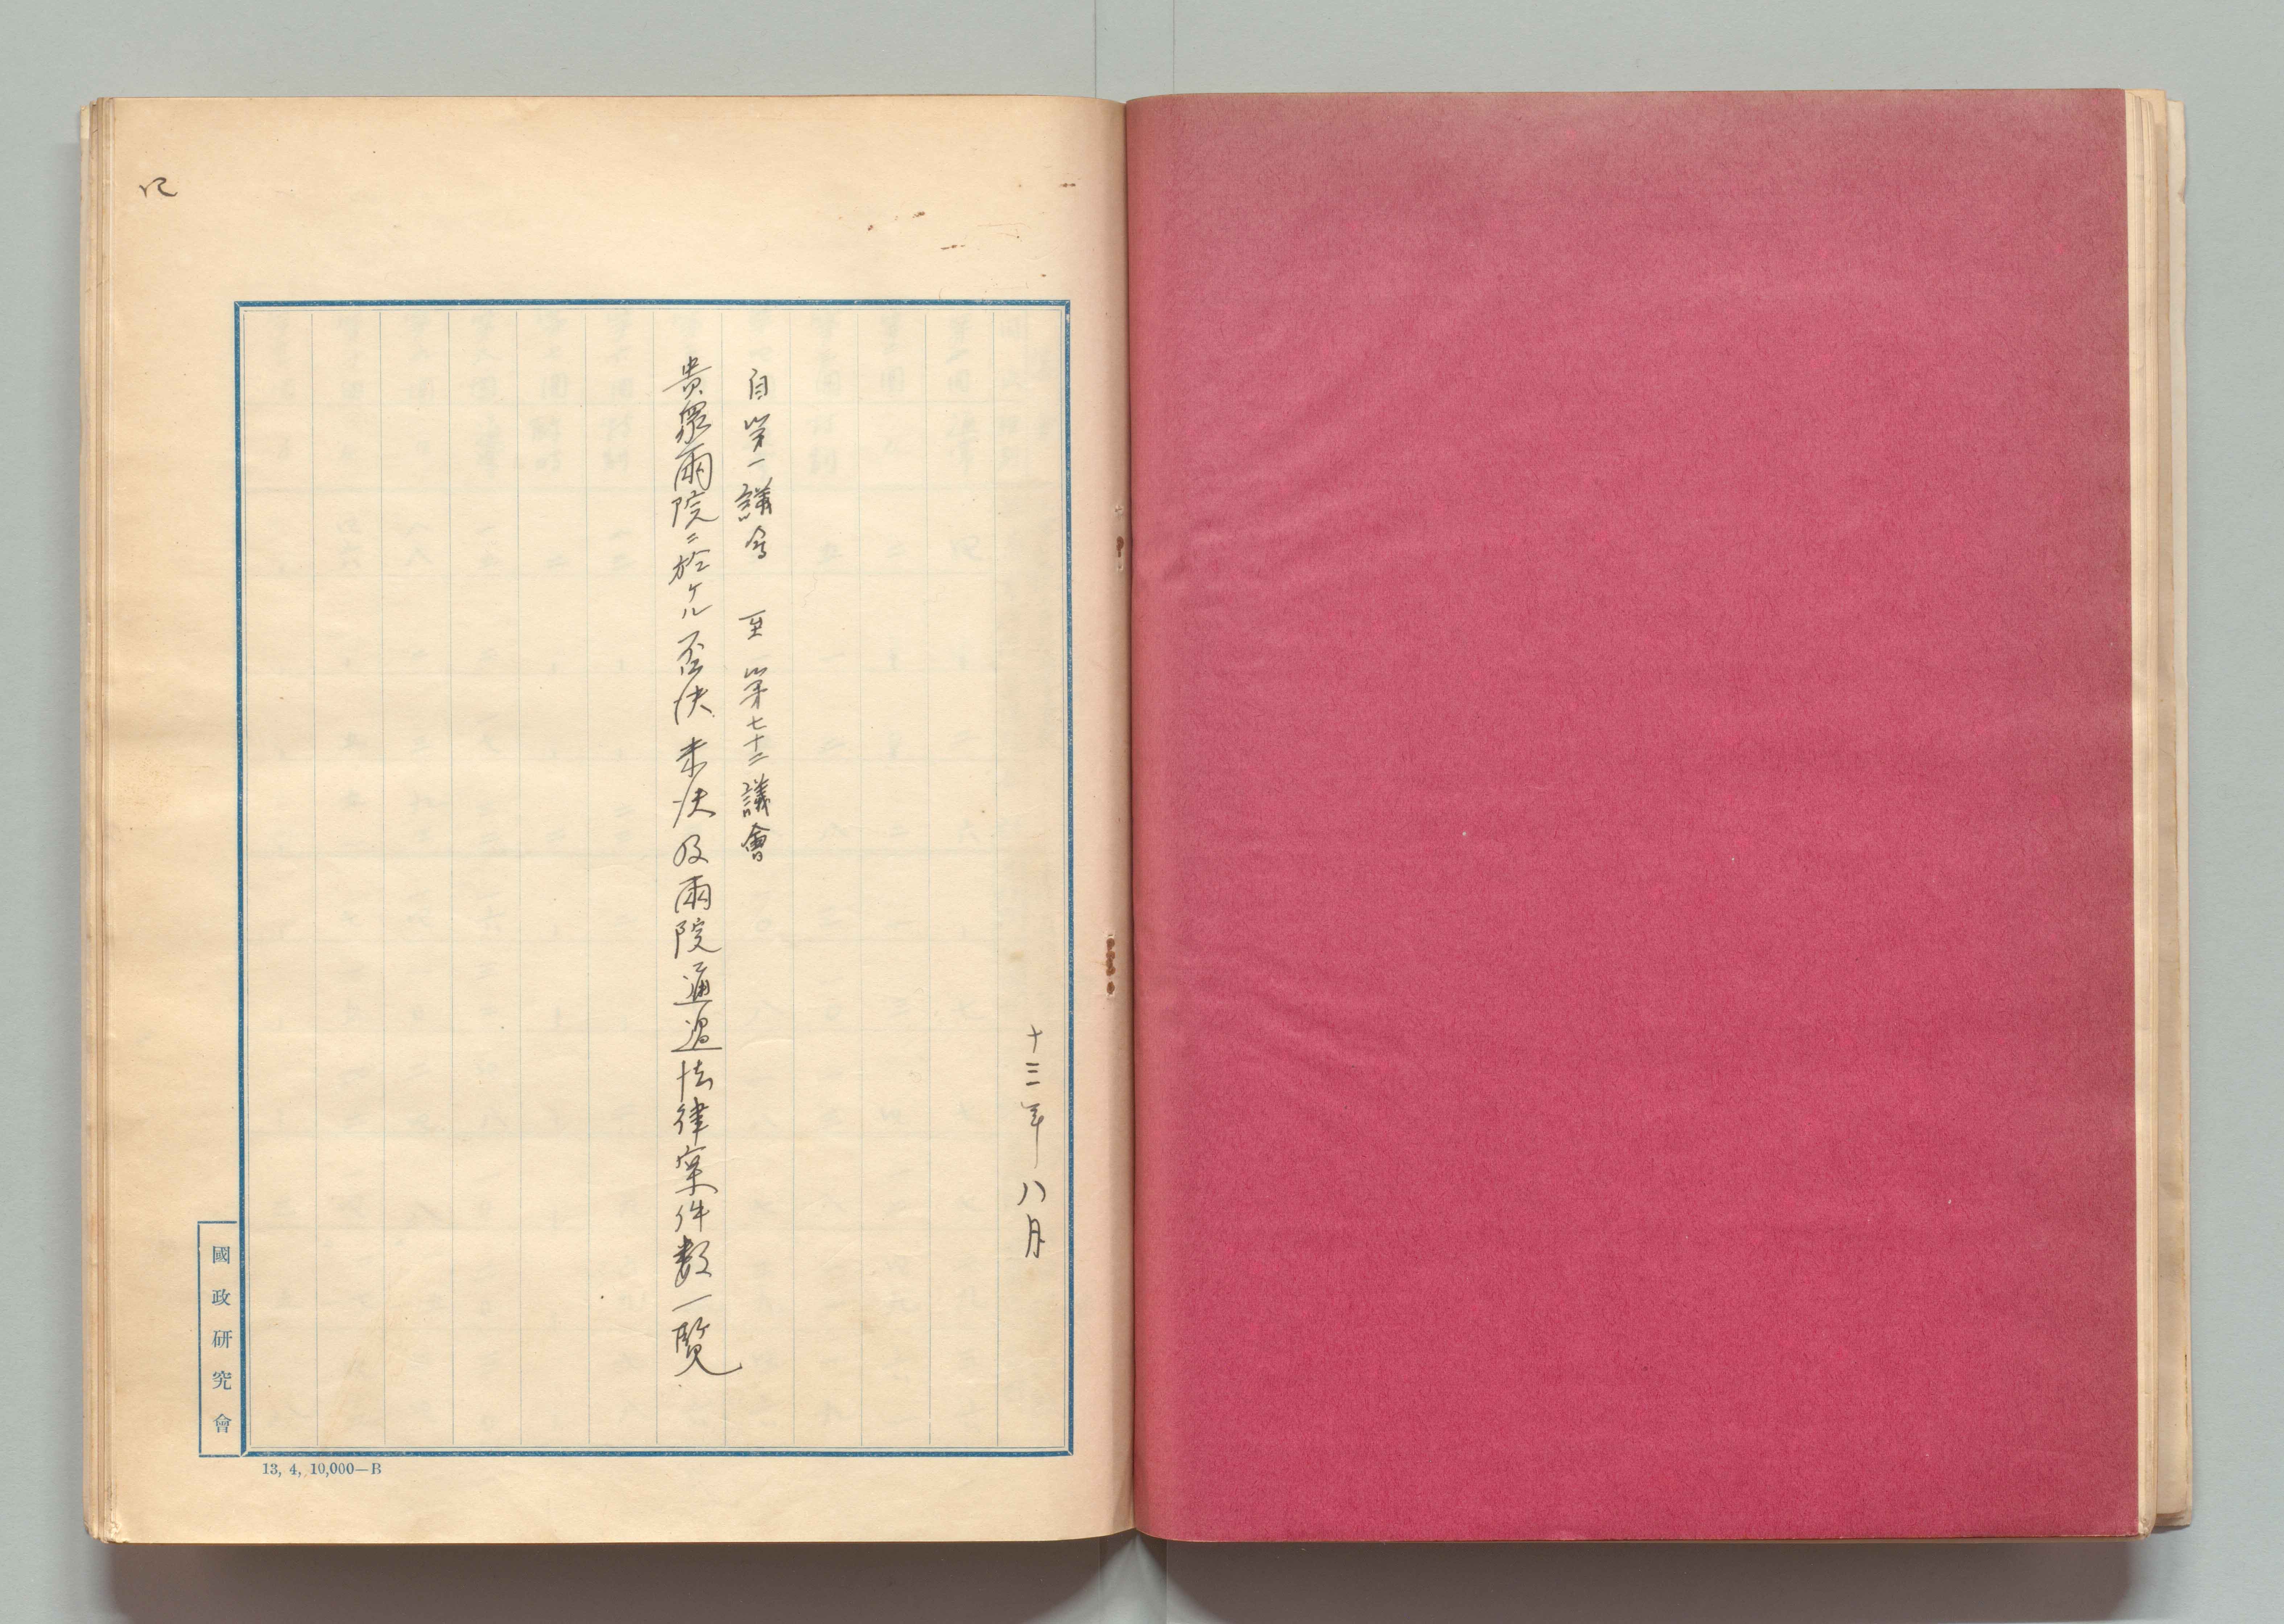 十三年八月
自第一議會 至第七十三議會
貴衆兩院ニ於ケル否決未決及兩院通過法律案件数一覧
國政研究會
13, 4, 10,000—B